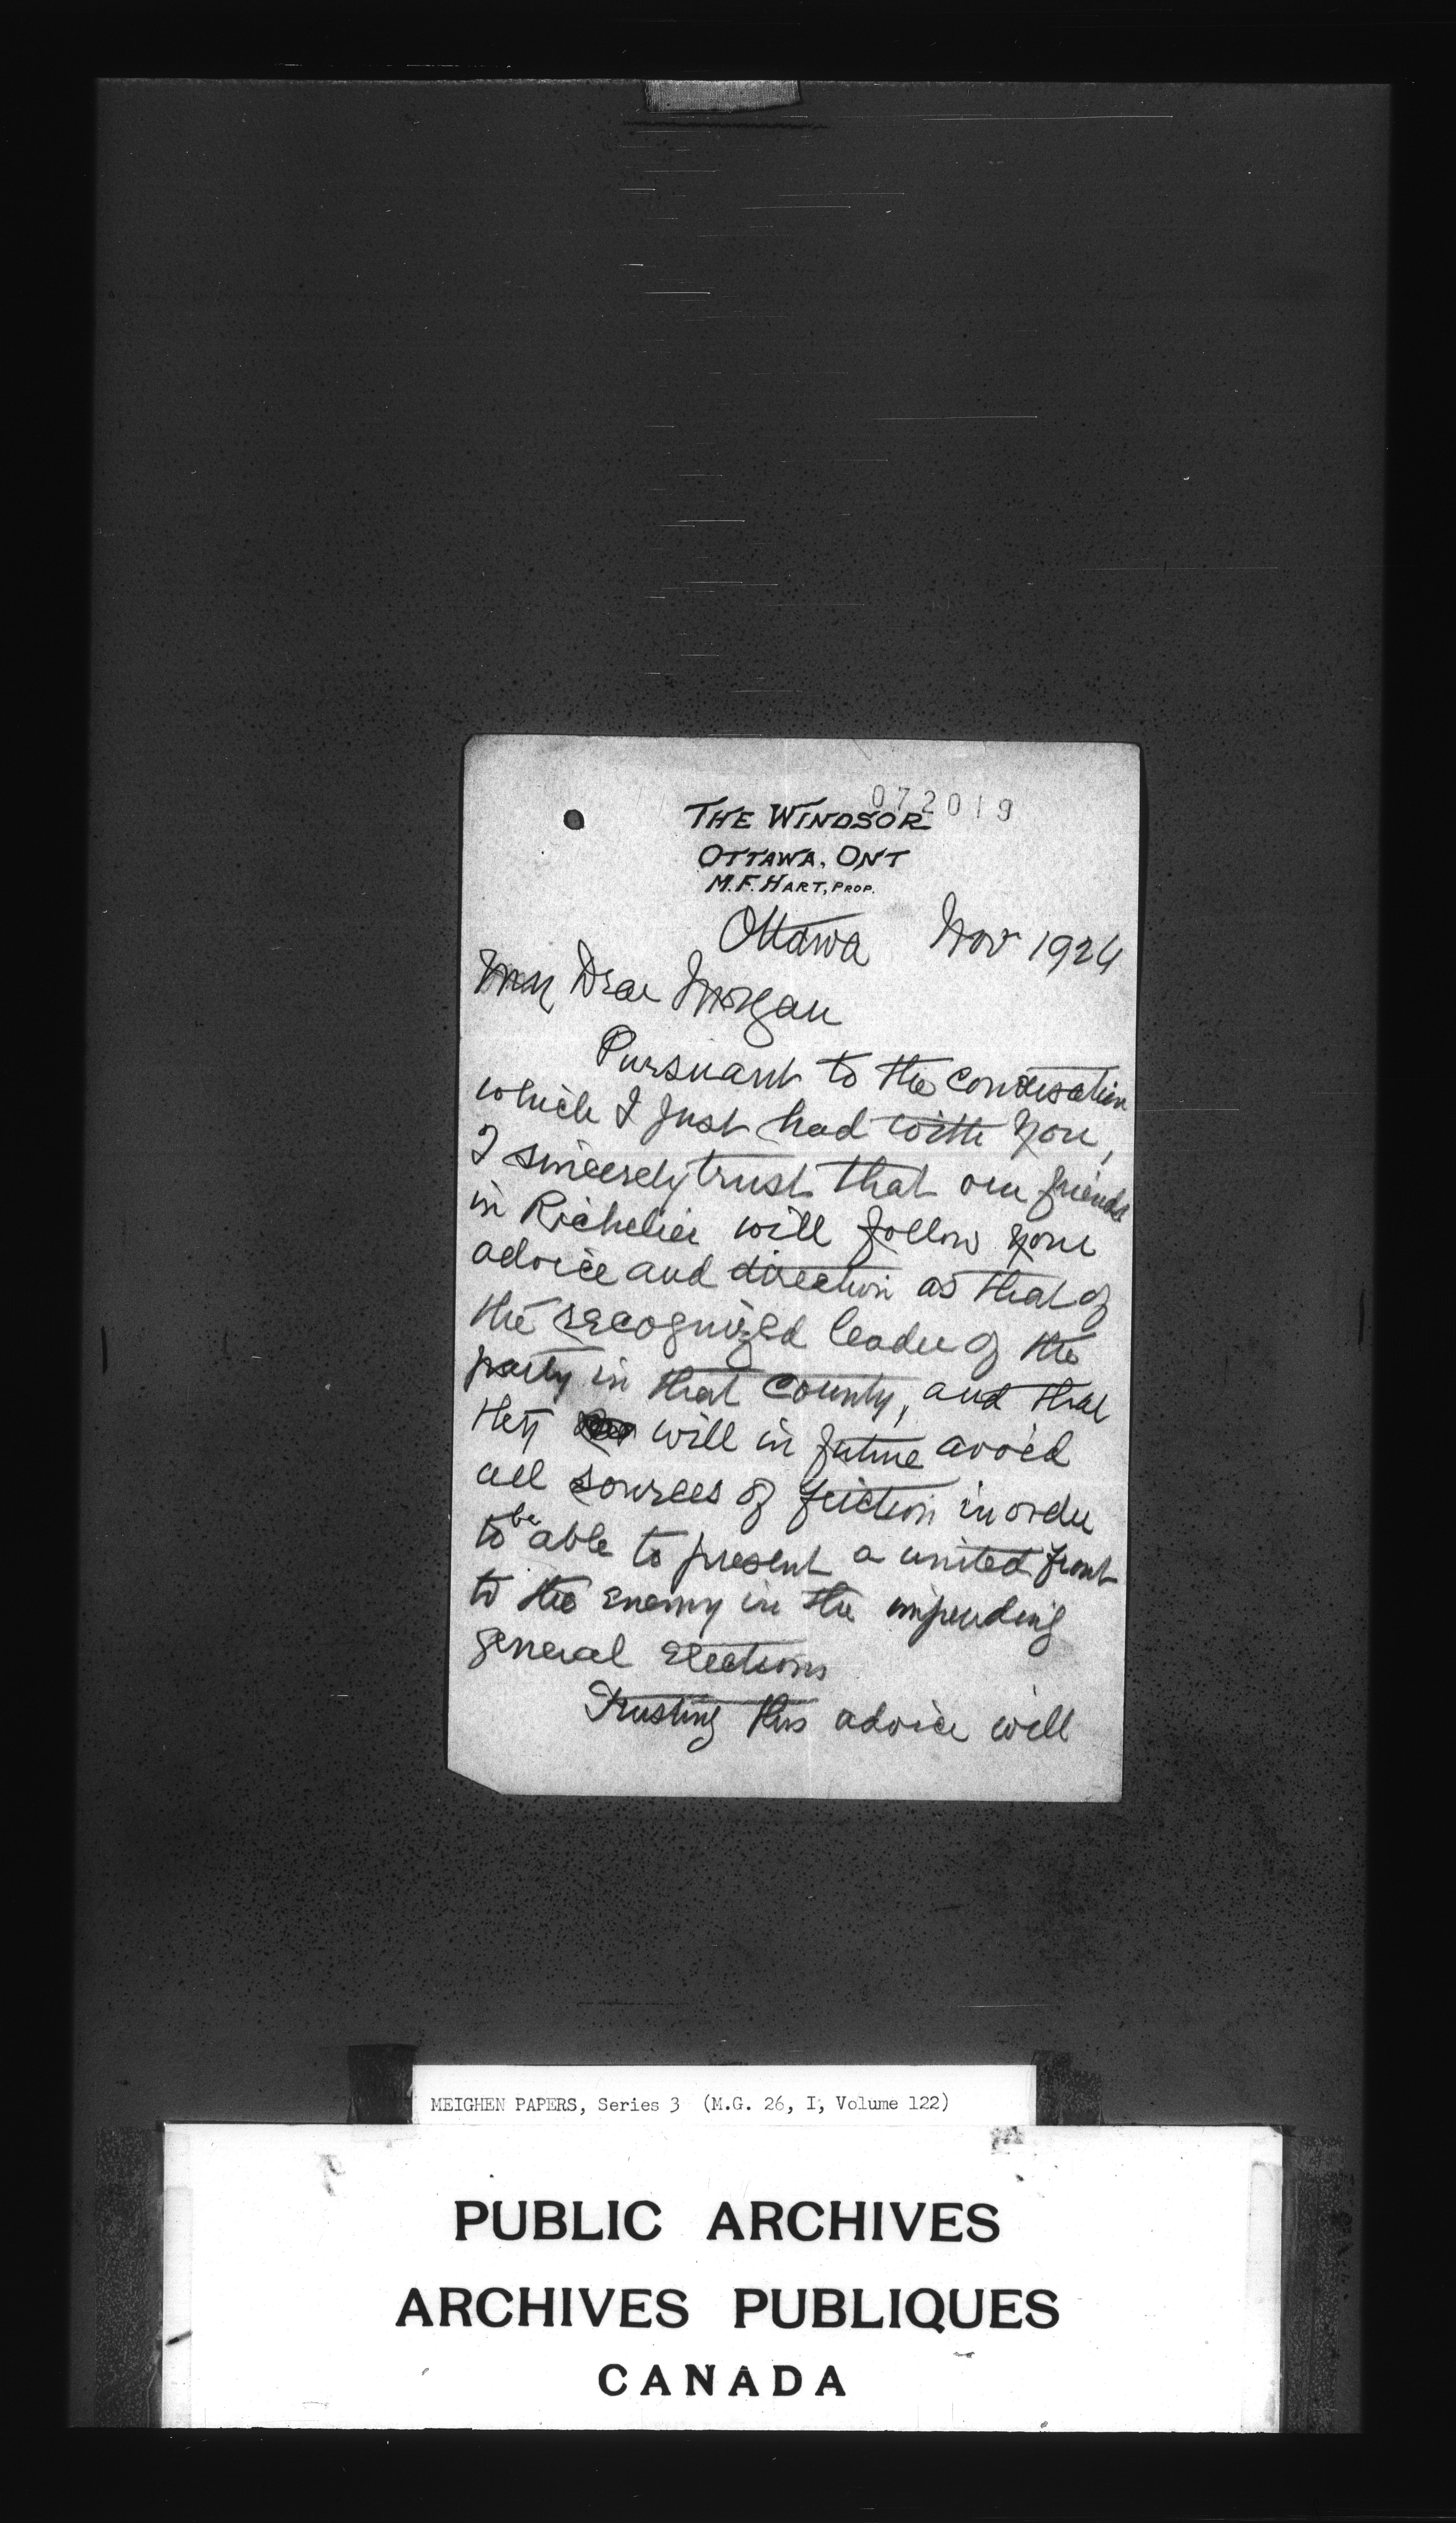 072019
THE WINDSOR
OTTAWA, ONT
M. F. HART, PROP.
Ottawa Nov 1924
My Dear Morgan
Pursuant to the conversation
which I just had with you,
I sincerely trust that our friends
in Richelieu will follow your
advice and direction as that of
the recognized leader of the
party in that County, and that
they will in future avoid
all sources of friction in order
to be able to present a united front
to the enemy in the impending
general elections
Trusting this advice will
MEIGHEN PAPERS, Series 3 (M.G. 26, I, Volume 122)
PUBLIC ARCHIVES
ARCHIVES PUBLIQUES
CANADA